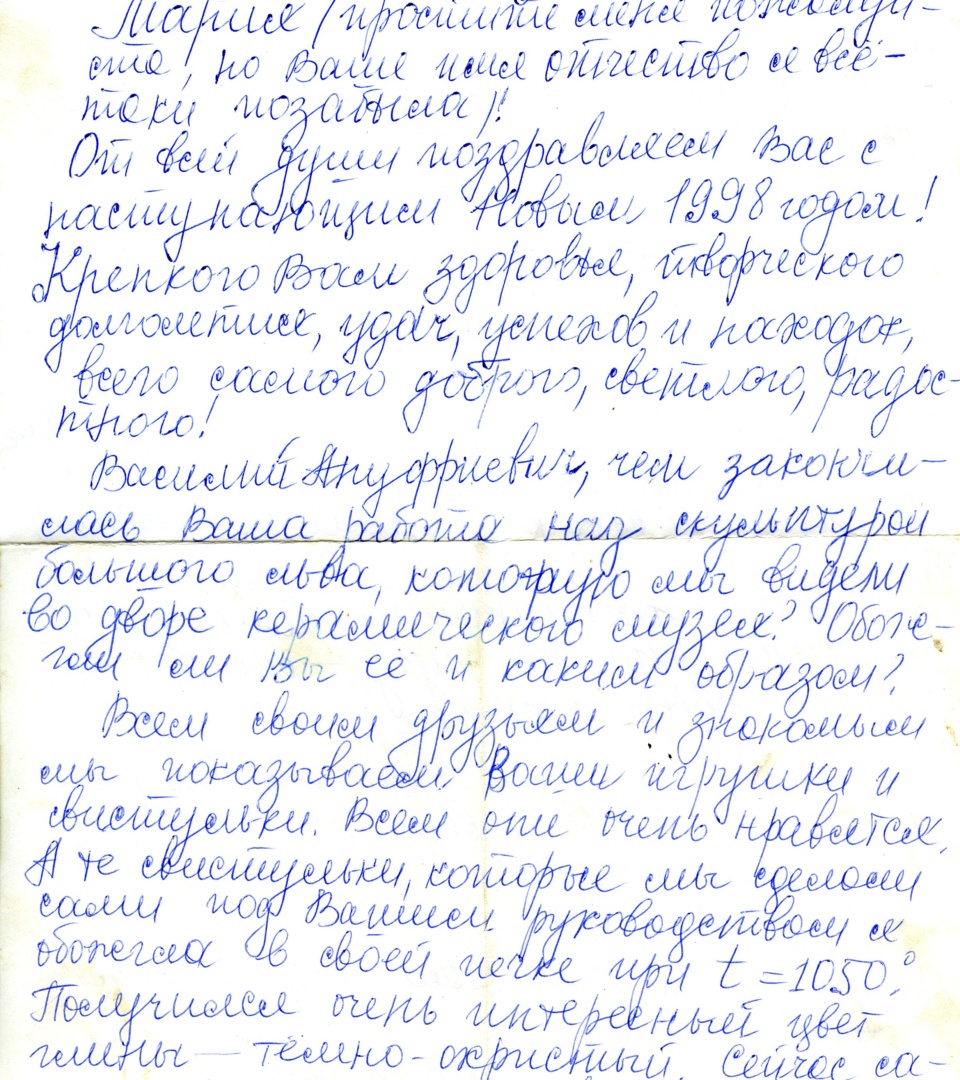 Мария (простите меня пожалуй-
ста, но Ваше имя отчество я всё-
таки позабыла)!
От всей души поздравляем Вас с
наступающим Новым 1998 годом!
Крепкого Вам здоровья, творческого
долголетия, удач, успехов и находок,
всего самого доброго, светлого, радос-
тного!
Василий Ануфриевич, чем закончи-
лась Ваша работа над скульптурой
большого льва, которую мы видели
во дворе керамического музея? Обож-
гли ли Вы её и каким образом?
Всем своим друзьям и знакомым
мы показываем Ваши игрушки и
свистульки. Всем они очень нравятся.
А те свистульки, которые мы сделали
сами под Вашим руководством я
обожгла в своей печке при t = 1050°.
Получился очень интересный цвет
глины — тёмно-охристый. Сейчас са-